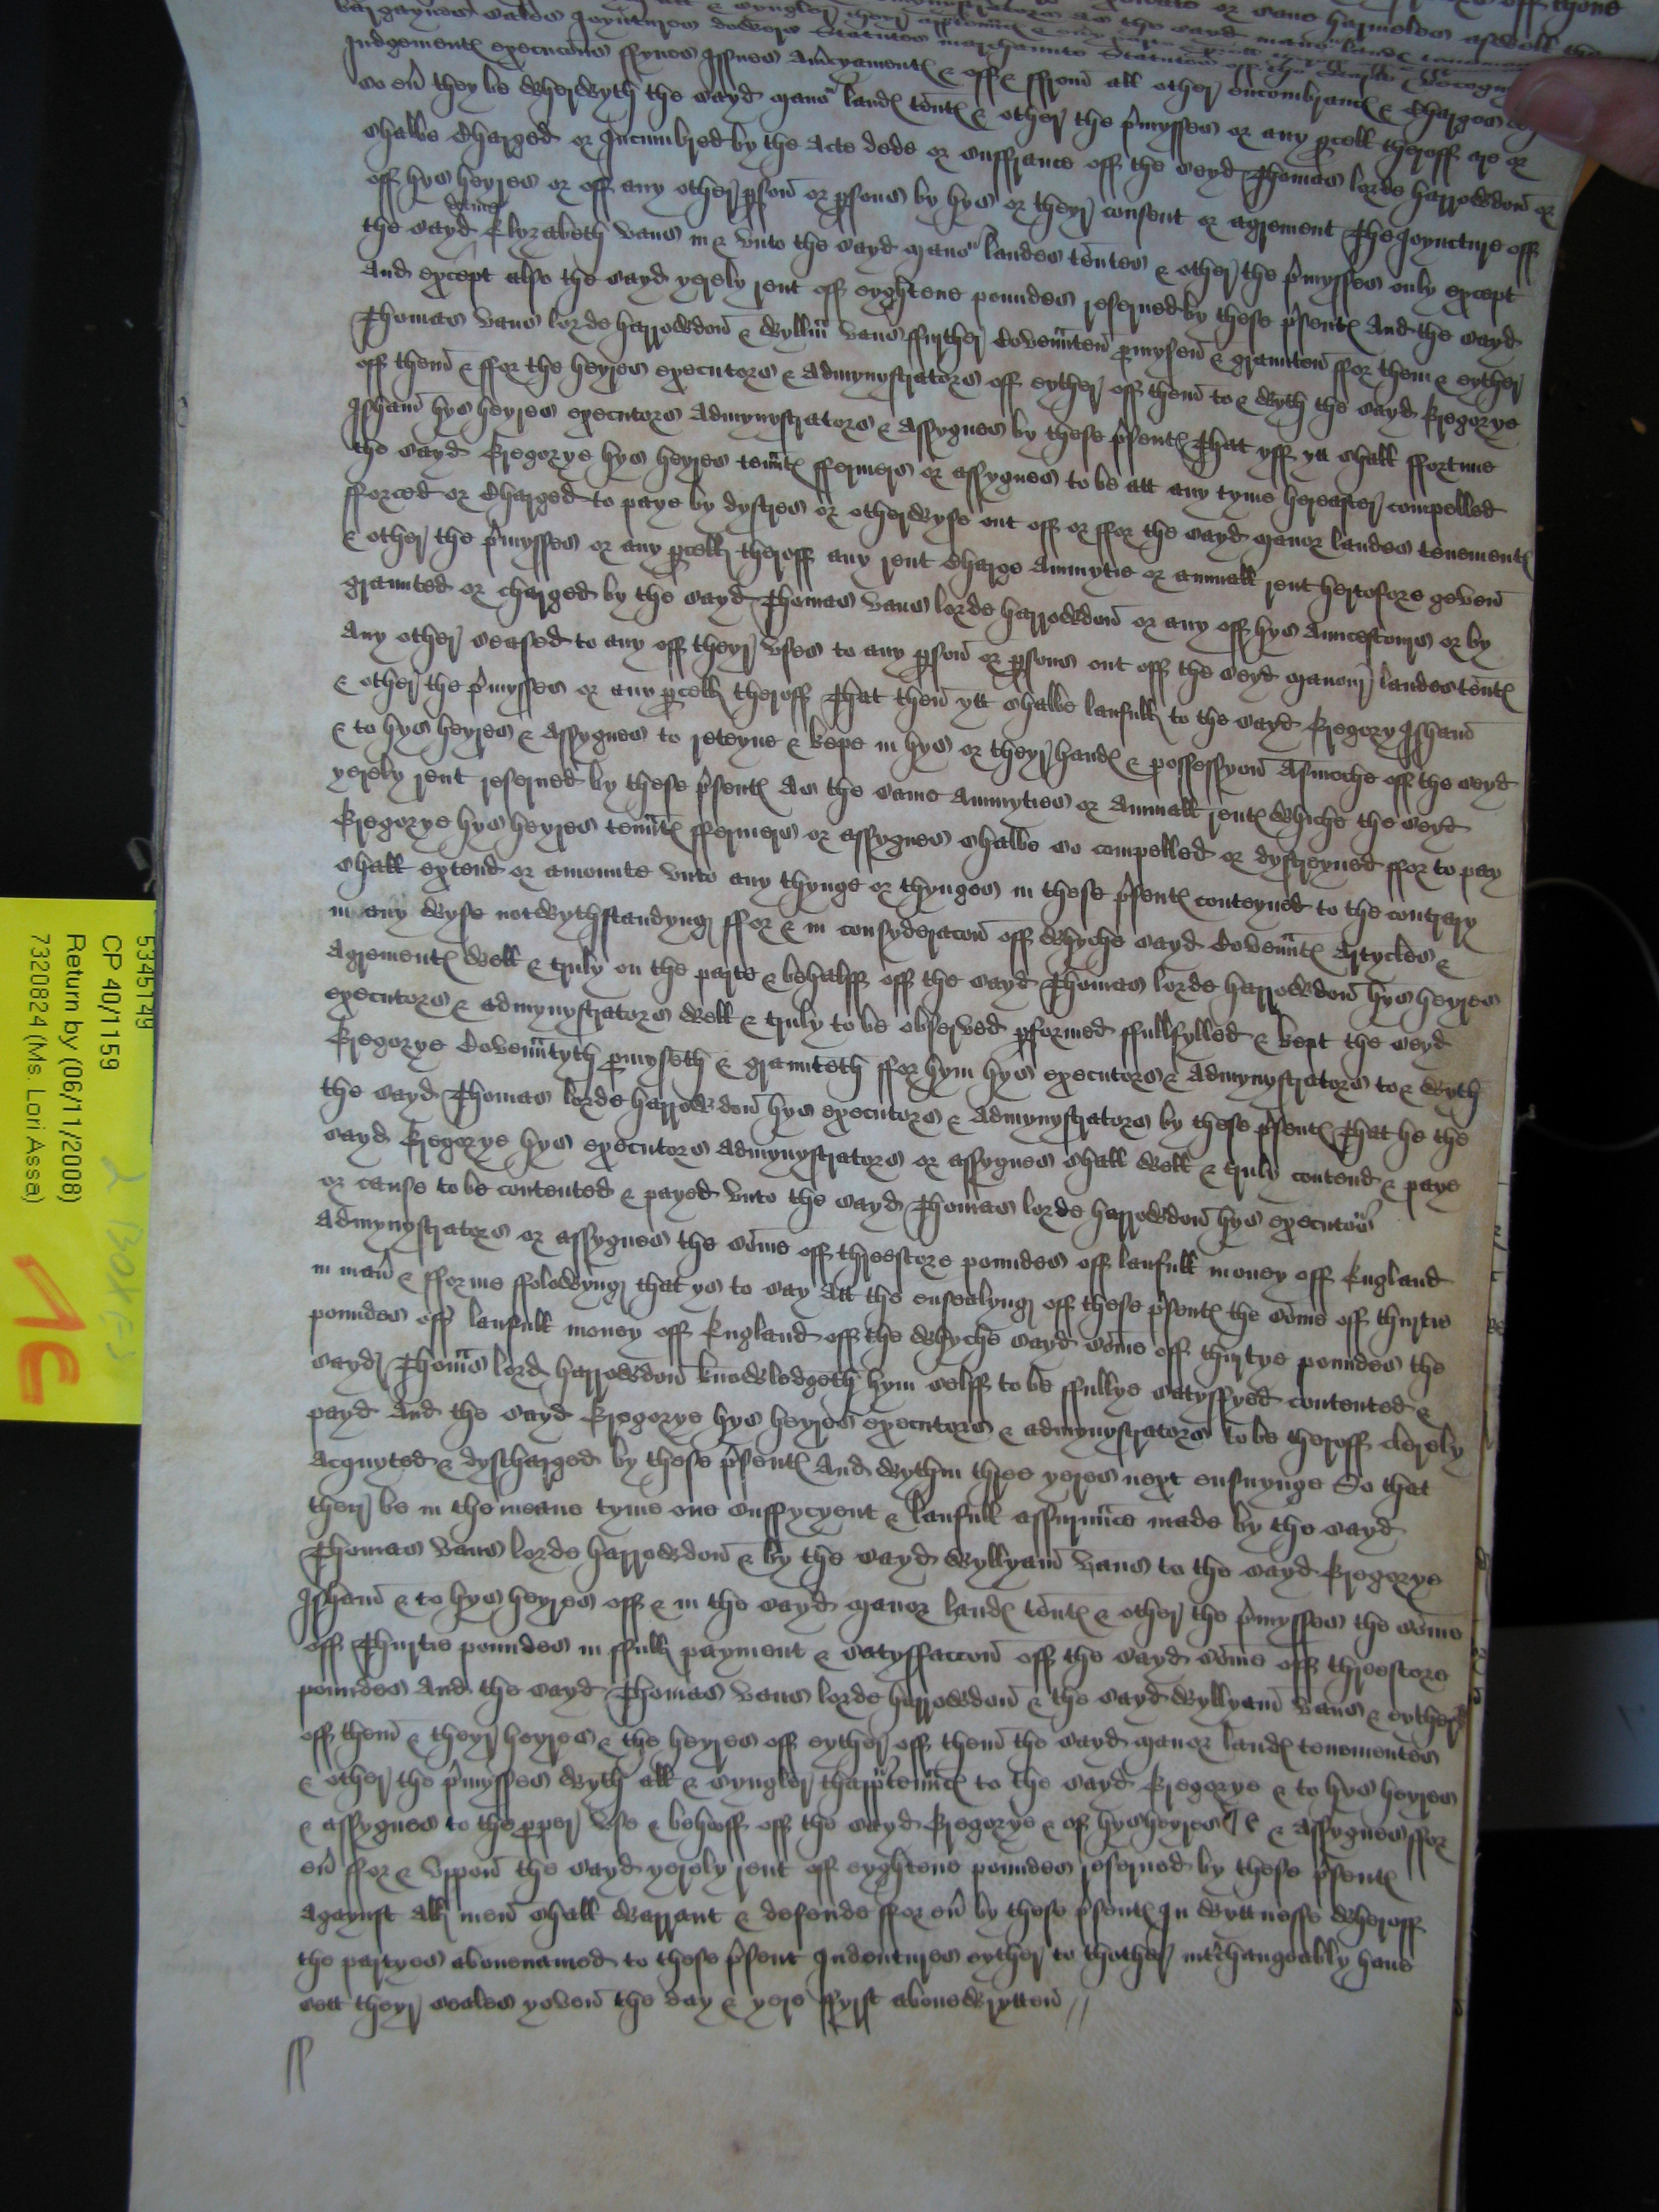 or same harmeles aswell the
bargaynes sales Joyntures dowers Statutes marchaunte Statutes off the Staple Recogn
Judgementꝭ execucõns ffynes Issues Am̃cyamentꝭ & off & ffrom̃ all other encombrancꝭ & Charges
so eũ they be wherwyth the sayd mano͛ landꝭ teñtꝭ & other the p̃mysses or any ꝑcell theroff are or
shalbe Charged or Incumbred by the Acte dede or suffrance off the seyd Thomas lorde harrowdoñ or
off hys heyres or off any other ꝑsoñ or ꝑsons by hys or theyr consent or agrement The Joyncture off
dame
the sayd Elyzabeth vaus in & vnto the sayd mano͛ landes teñtes & other the p̃mysses only except
And except also the sayd yerely rent off eyghtene poundes reserued by these p̃sentꝭ And the sayd
Thomas vaus lorde harrowdoñ & wyllm̃ vaus ffurther Coven̄nteñ ꝓmyseñ & graunteñ ffor them & eyther
off them̃ & ffor the heyres executors & Admynystrators off eyther off them̃ to & wyth the sayd Gregorye
Isham̃ hys heyres executors Admynystrators & Assygnes by these p̃sentꝭ That yff ytt shall ffortune
the sayd Gregorye hys heyres ten̄ntꝭ ffermers or assygnes to be att any tyme hereafter compelled
fforced or Charged to paye by dystres or otherwyse out off or ffor the sayd manor landes tenementꝭ
& other the p̃mysses or any ꝑcell theroff any rent Charge Annuytie or annuall rent hertofore geveñ
graunted or charged by the sayd Thomas vaus lorde harrowdoñ or any off hys Auncestours or by
Any other seased to any off theyr vses to any ꝑsoñ or ꝑsons out off the seyd manour landes teñtꝭ
& other the p̃mysses or any ꝑcell theroff That theñ ytt shalbe laufull to the sayd Gregory Isham̃
& to hys heyres & Assygnes to reteyne & kepe in hys or theyr handꝭ & possessyoñ Asmoche off the seyd
yerely rent reserued by these p̃sentꝭ As the same Annuyties or Annuall rentꝭ whiche the seyd
Gregorye hys heyres ten̄ntꝭ ffermers or assygnes shalbe so compelled or dystreyned ffor to pay
shall extend or amounte vnto any thynge or thynges in these p̃sentꝭ conteyned to the contrary
in any wyse notwythstandyng ffor & in consyderacoñ off whyche sayd Coven̄ntꝭ Artycles &
Agrementꝭ well & truly on the parte & behalff off the sayd Thomas lorde harrowdoñ hys heyres
executors & admynystrators well & truly to be obserued ꝑformed ffullfylled & kept the seyd
Gregorye Coven̄ntyth ꝓmyseth & graunteth ffor hym hys executors & Admynystrators to & wyth
the sayd Thomas lorde harrowdoñ hys executors & Admynystrators by these p̃sentꝭ That he the
sayd Gregorye hys executors Admynystrators or assygnes shall well & truly contend & paye
or cause to be contented & payed vnto the sayd Thomas lorde harrowdoñ hys executo͛s
Admynystrators or assygnes the some off threescore poundes off laufull money off England
in mañ & fforme ffolowyng that ys to say Att the ensealyng off these p̃sentꝭ the some off thirtie
poundes off laufull money off England off the whyche sayd some off thirtye poundes the
sayd Thomas lord harrowdoñ knowledgeth hym selff to be ffullye satysfyed contented &
payd And the sayd Gregorye hys heyres executors & admynystrators to be theroff clerely
Acquyted & dyscharged by these p̃sentꝭ And wythin three yeres next ensuynge So that
ther be in the meane tyme one suffycyent & laufull assurn̄ce made by the sayd
Thomas vaus lorde harrowdoñ & by the sayd wyllyam̃ vaus to the sayd Gregorye
Isham̃ & to hys heyres off & in the sayd manor landꝭ teñtꝭ & other the p̃mysses the some
off Thirtie poundes in ffull payment & satysfaccoñ off the sayd some off threescore
poundes And the sayd Thomas vaus lorde harrowdoñ & the sayd wyllyam̃ vaus & eyther
off them̃ & theyr heyres & the heyres off eyther off them̃ the sayd manor landꝭ tenementes
& other the p̃mysses wyth all & syngler thapꝑten̄ncꝭ to the sayd Gregorye & to hys heyres
& assygnes to the ꝓper vse & behooff off the sayd Gregorye & of hys heyres & Assygnes ffor
eũ ffor & vppoñ the sayd yerely rent off eyghtene poundes reserued by these p̃sentꝭ
Agaynst all meñ shall warrant & defende ffor eũ by these p̃sentꝭ In wyttnesse wheroff
the partyes abouenamed to these p̃sent Indentures eyther to thother int̃changeably haue
sett theyr seales yoveñ the day & yere ffyrst abouewrytteñ //
5345149
CP 40/1159
Return by (06/11/2008)
7320824 (Ms. Lori Assa)